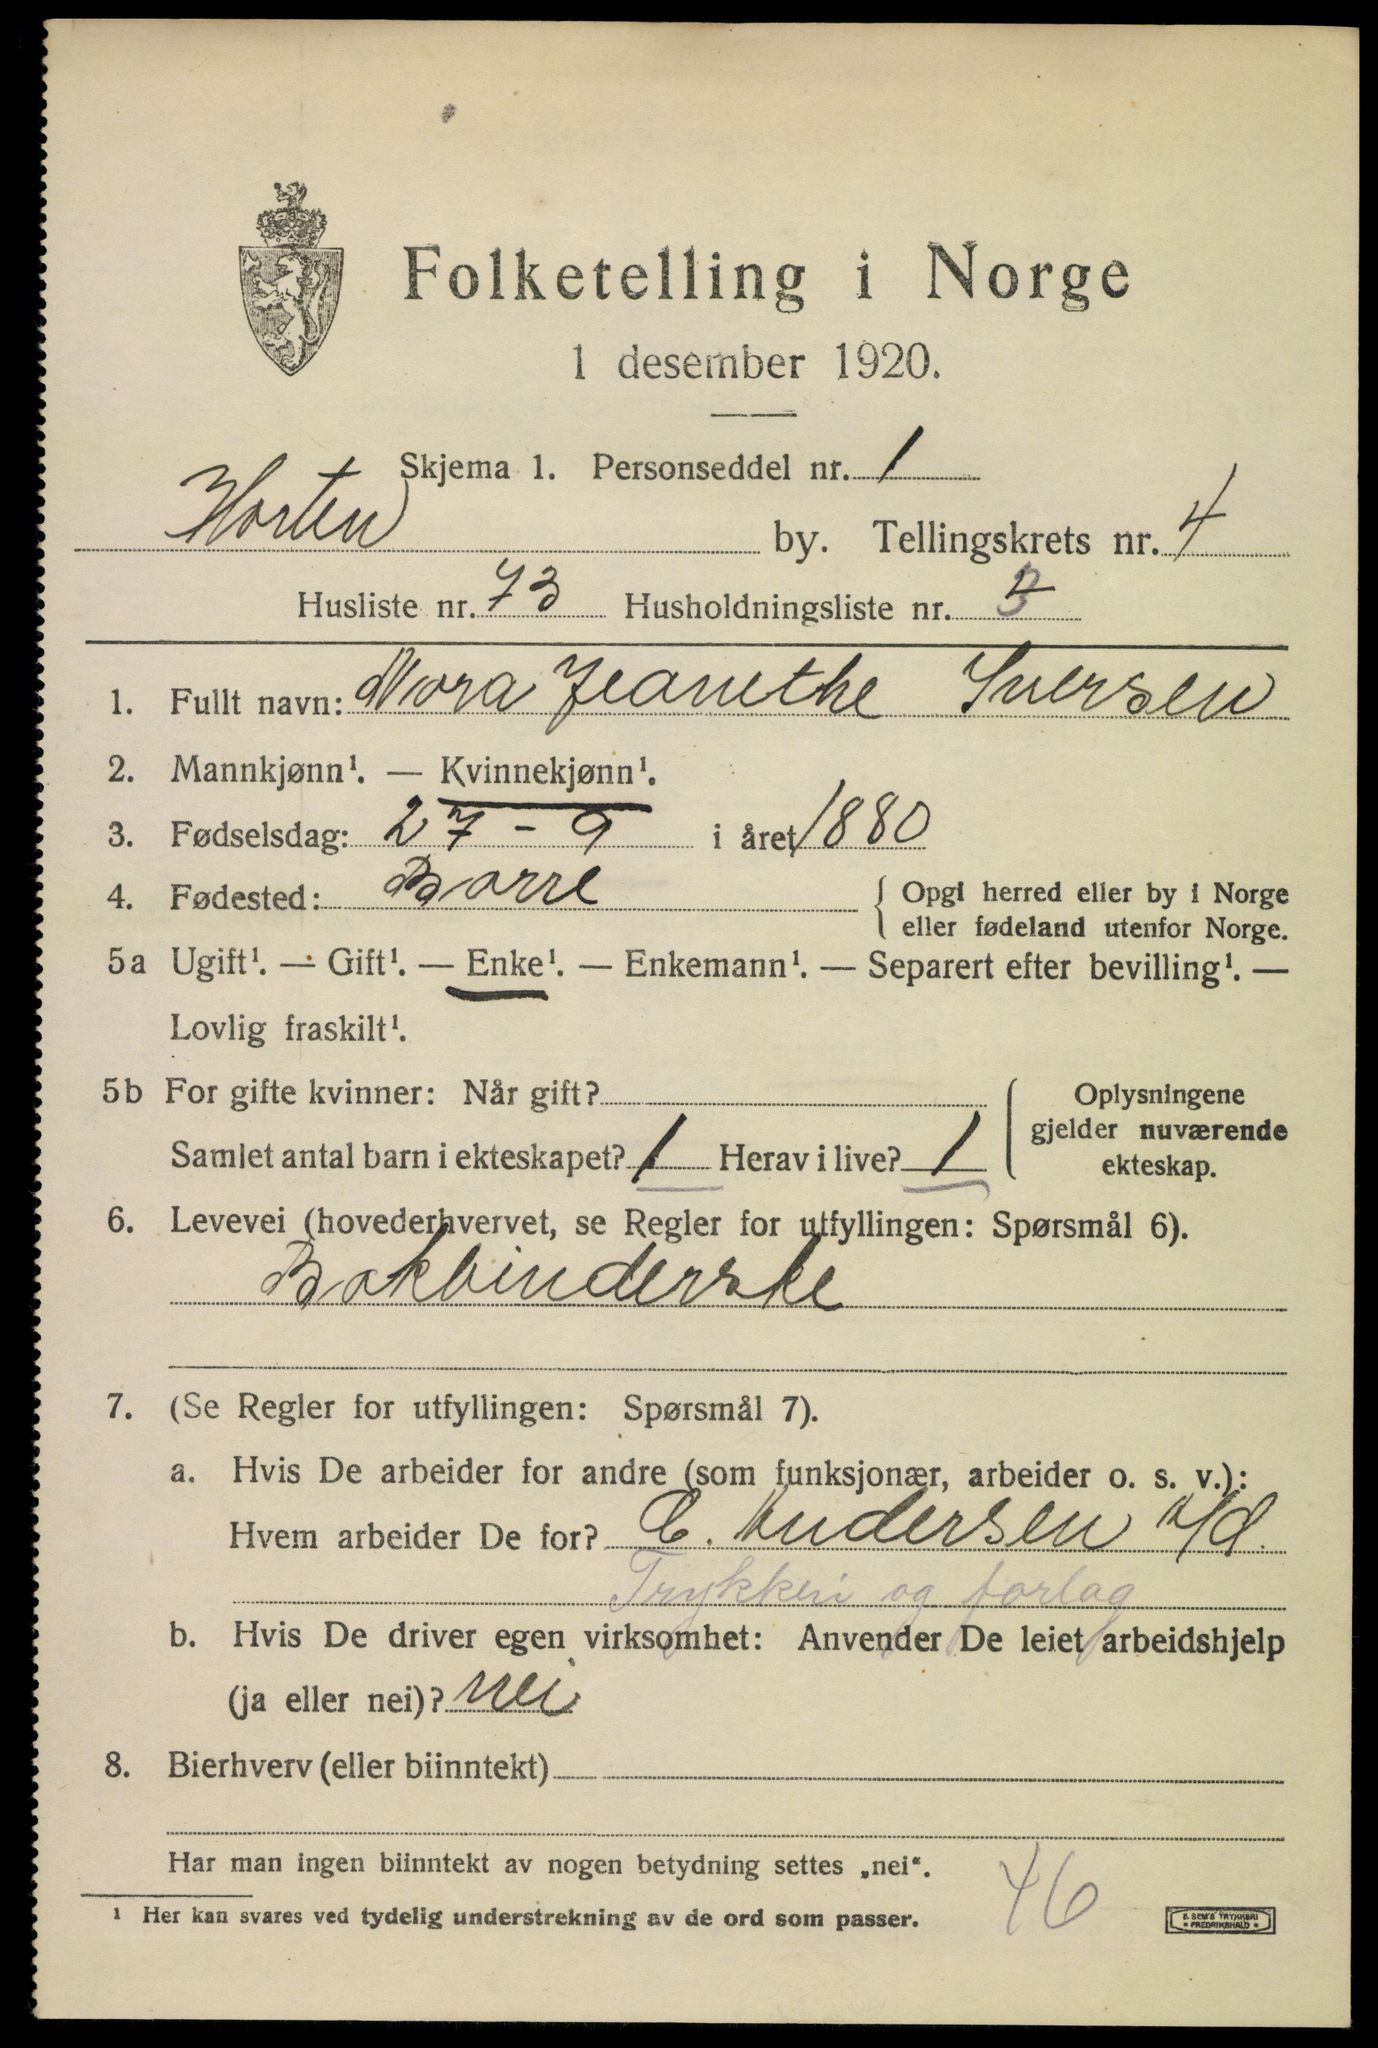 Folketelling i Norge
1 desember 1920.
Skjema 1. Personseddel nr. 1
Horten by. Tellingskrets nr. 4
Husliste nr. 73 Husholdningsliste nr.
1. Fullt navn: Nora Jeanethe Iversen
2. Mannkjønn¹. — Kvinnekjønn¹.
3. Fødselsdag: 27 - 9 i året 1880
4. Fødested: Borre { Opgi herred eller by i Norge
eller fødeland utenfor Norge.
5a Ugift¹. — Gift¹. — Enke¹. — Enkemann¹. — Separert efter bevilling¹. —
Lovlig fraskilt¹.
5b For gifte kvinner: Når gift? ( Oplysningene
gjelder nuværende
Samlet antal barn i ekteskapet? 1 Herav i live? 1
ekteskap.
6. Levevei (hovederhvervet, se Regler for utfyllingen: Spørsmål 6).
Bokbinderske
7. (Se Regler for utfyllingen: Spørsmål 7).
a. Hvis De arbeider for andre (som funksjonær, arbeider o. s. v.):
Hvem arbeider De for? C. Andersen
Trykkeri og forlag
b. Hvis De driver egen virksomhet: Anvender De leiet arbeidshjelp
(ja eller nei)? nei
8. Bierhverv (eller biinntekt)
Har man ingen biinntekt av nogen betydning settes „nei“.
46
¹ Her kan svares ved tydelig understrekning av de ord som passer.
E. SEM'S TRYKKERI
• FREDRIKSHALD •